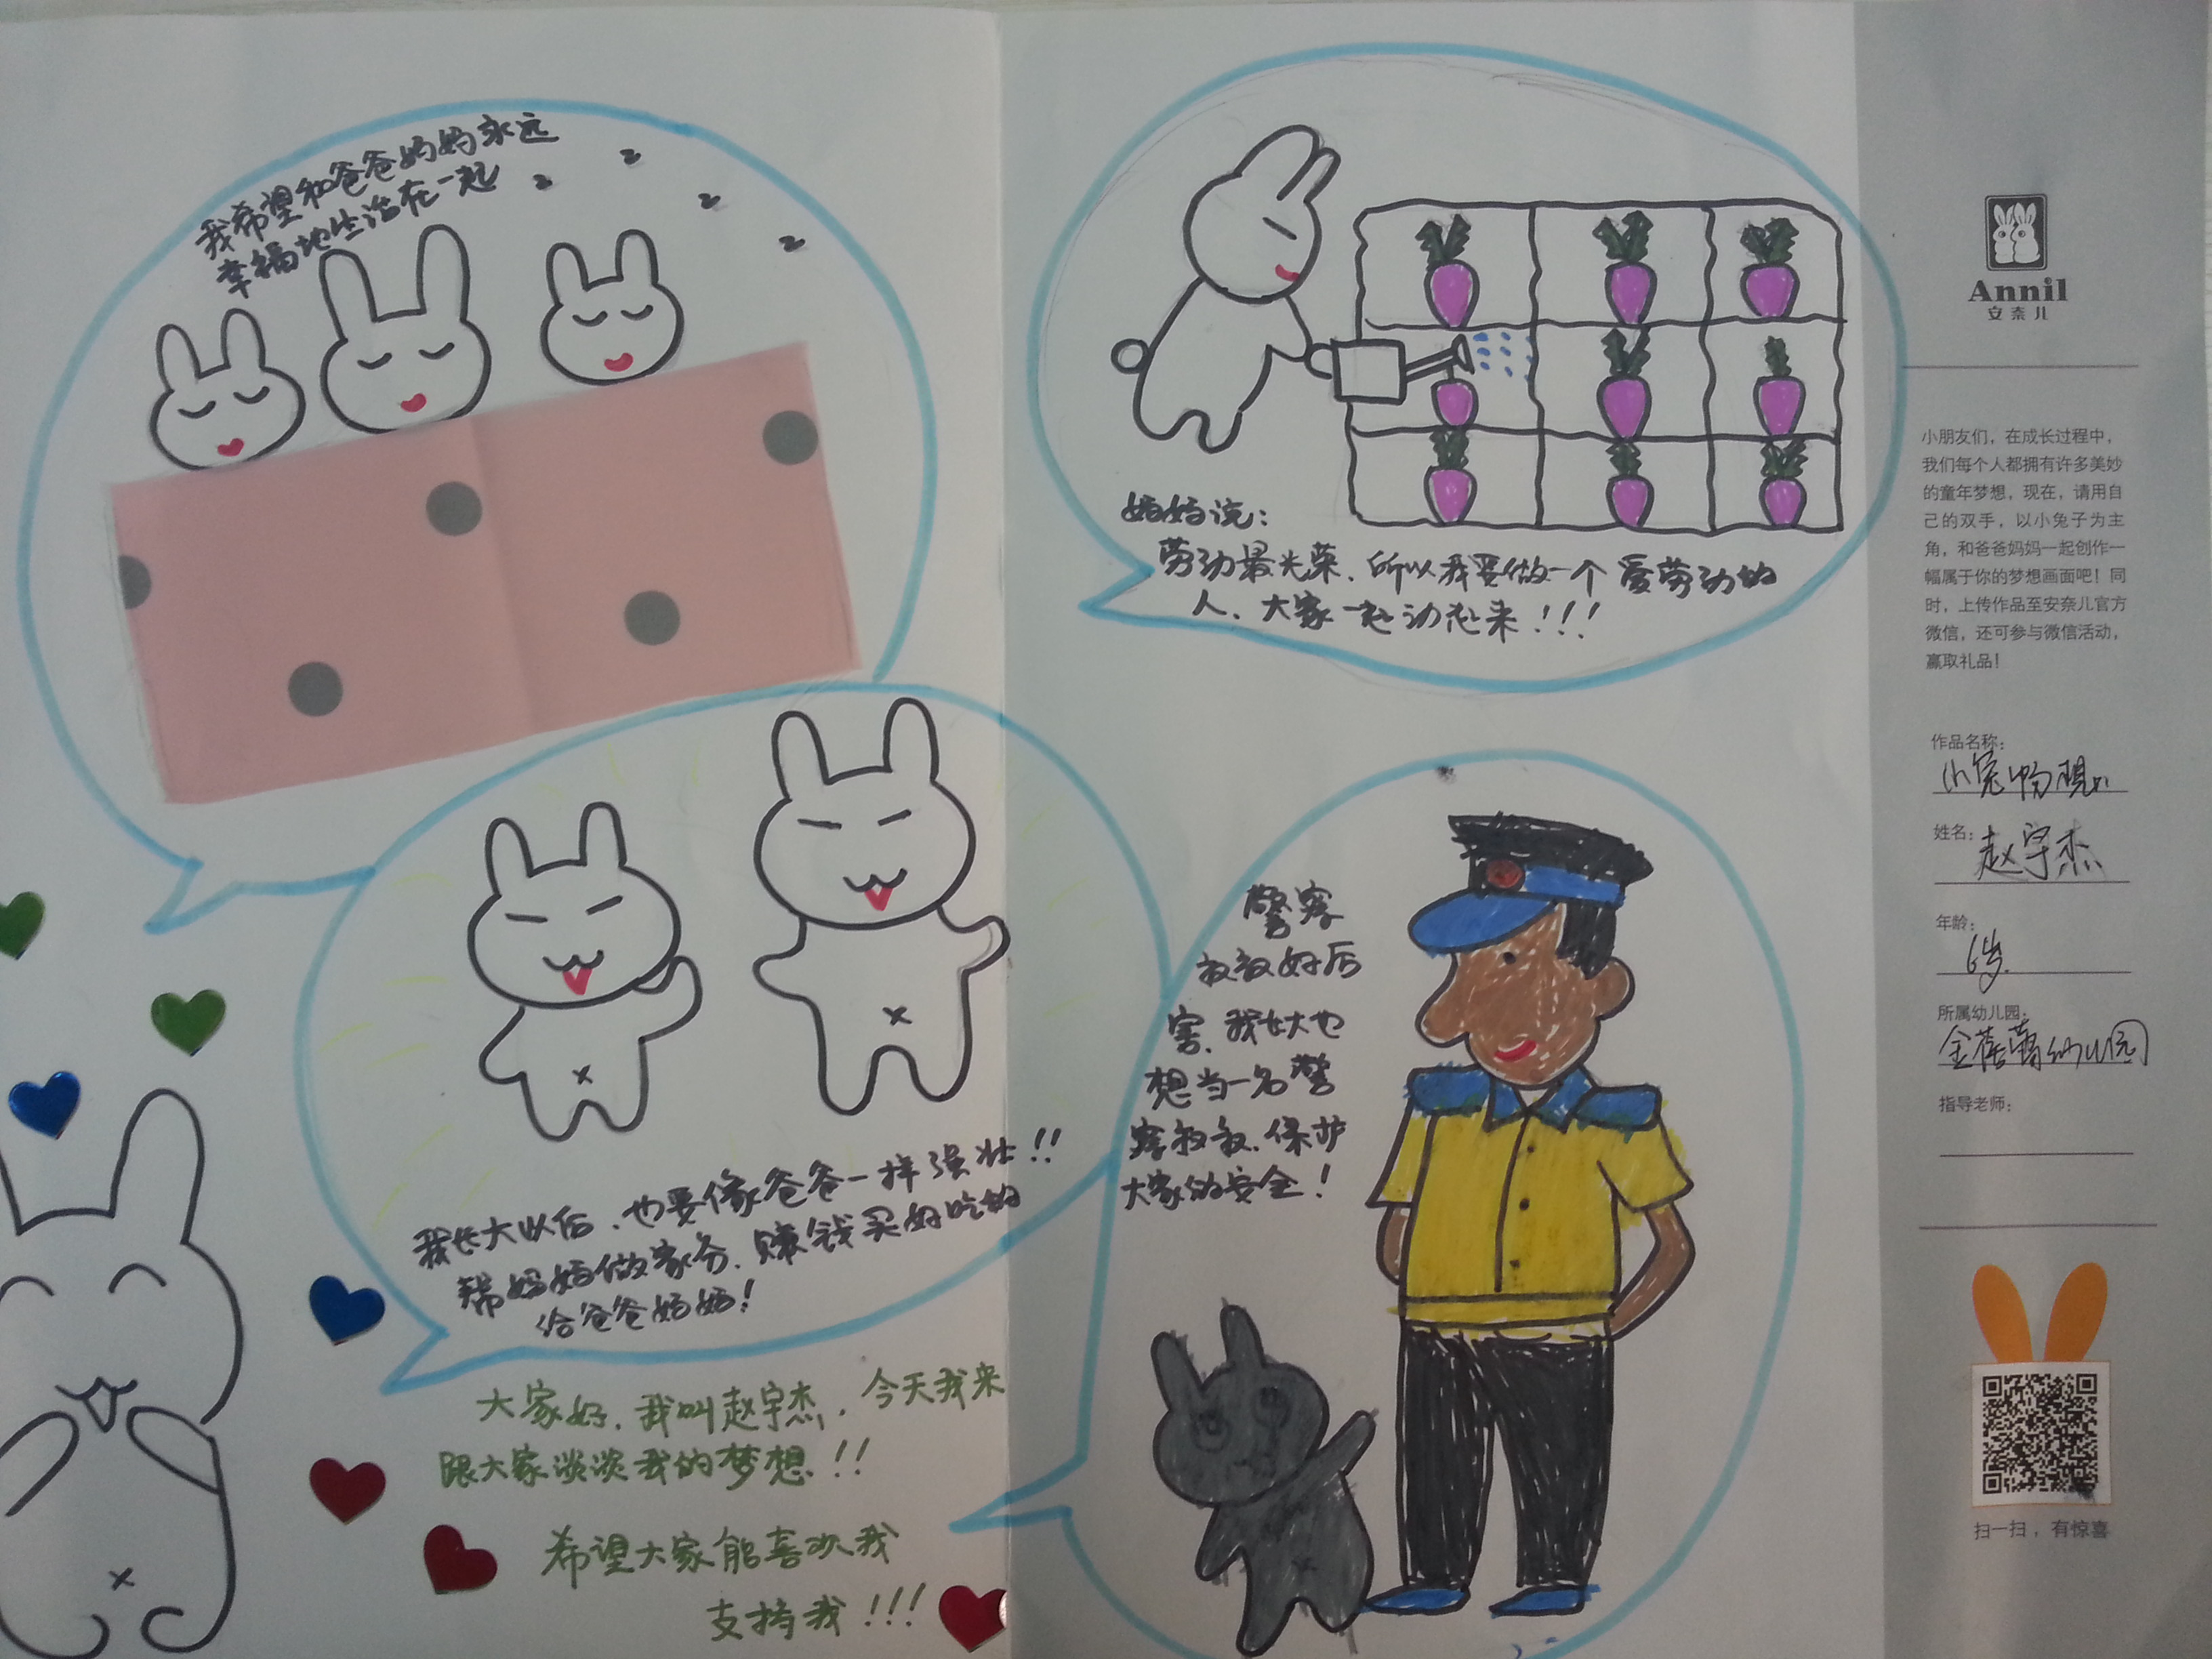 我希望和爸爸妈妈永远
幸福地生活在一起
z
z
z
z
妈妈说：
劳动最光荣、所以我要做一个爱劳动的
人、大家一起动起来！！！
我长大以后、也要像爸爸一样强壮！！
帮妈妈做家务、赚钱买好吃的
给爸爸妈妈！
警察
叔叔好厉
害、我
也
想当一名警
察叔叔、保护
大家的安全！
大家好、我叫赵宇杰、今天我来
跟大家谈谈我的梦想！！
希望大家能喜欢我
支持我！！！
Annil
安奈儿
小朋友们，在成长过程中，
我们每个人都拥有许多美妙
的童年梦想，现在，请用自
己的双手，以小兔子为主
角，和爸爸妈妈一起创作一
幅属于你的梦想画面吧！同
时，上传作品至安奈儿官方
微信，还可参与微信活动，
赢取礼品！
作品名称：
小兔畅想
姓名：
赵宇杰
年龄：
6岁
所属幼儿园：
金蓓蕾幼儿园
指导老师：
扫一扫，有惊喜